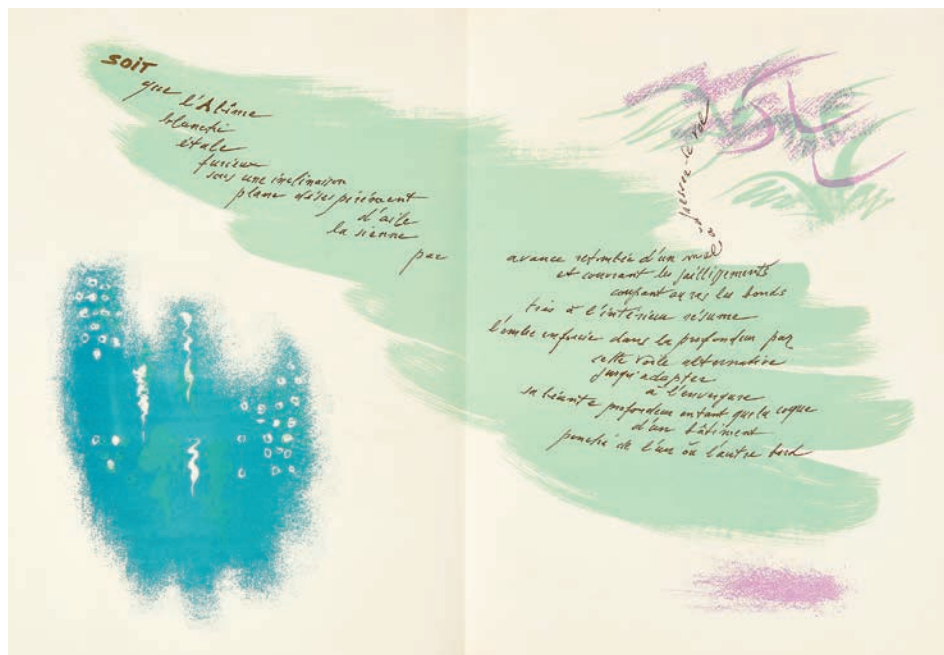 soit
que
l'Abîme
blanchi
étale
furieux
sous une inclinaison
plane désespérément
d'aile
la sienne
par
avance retombée d'un mal à dresser le vol
et couvrant les jaillissements
coupant au ras les bonds
très à l'intérieur résume
l'ombre enfouie dans la profondeur par
cette voile alternative
jusqu'adapter
à l'envergure
sa béante profondeur en tant que la coque
d'un bâtiment
penché de l'un ou l'autre bord